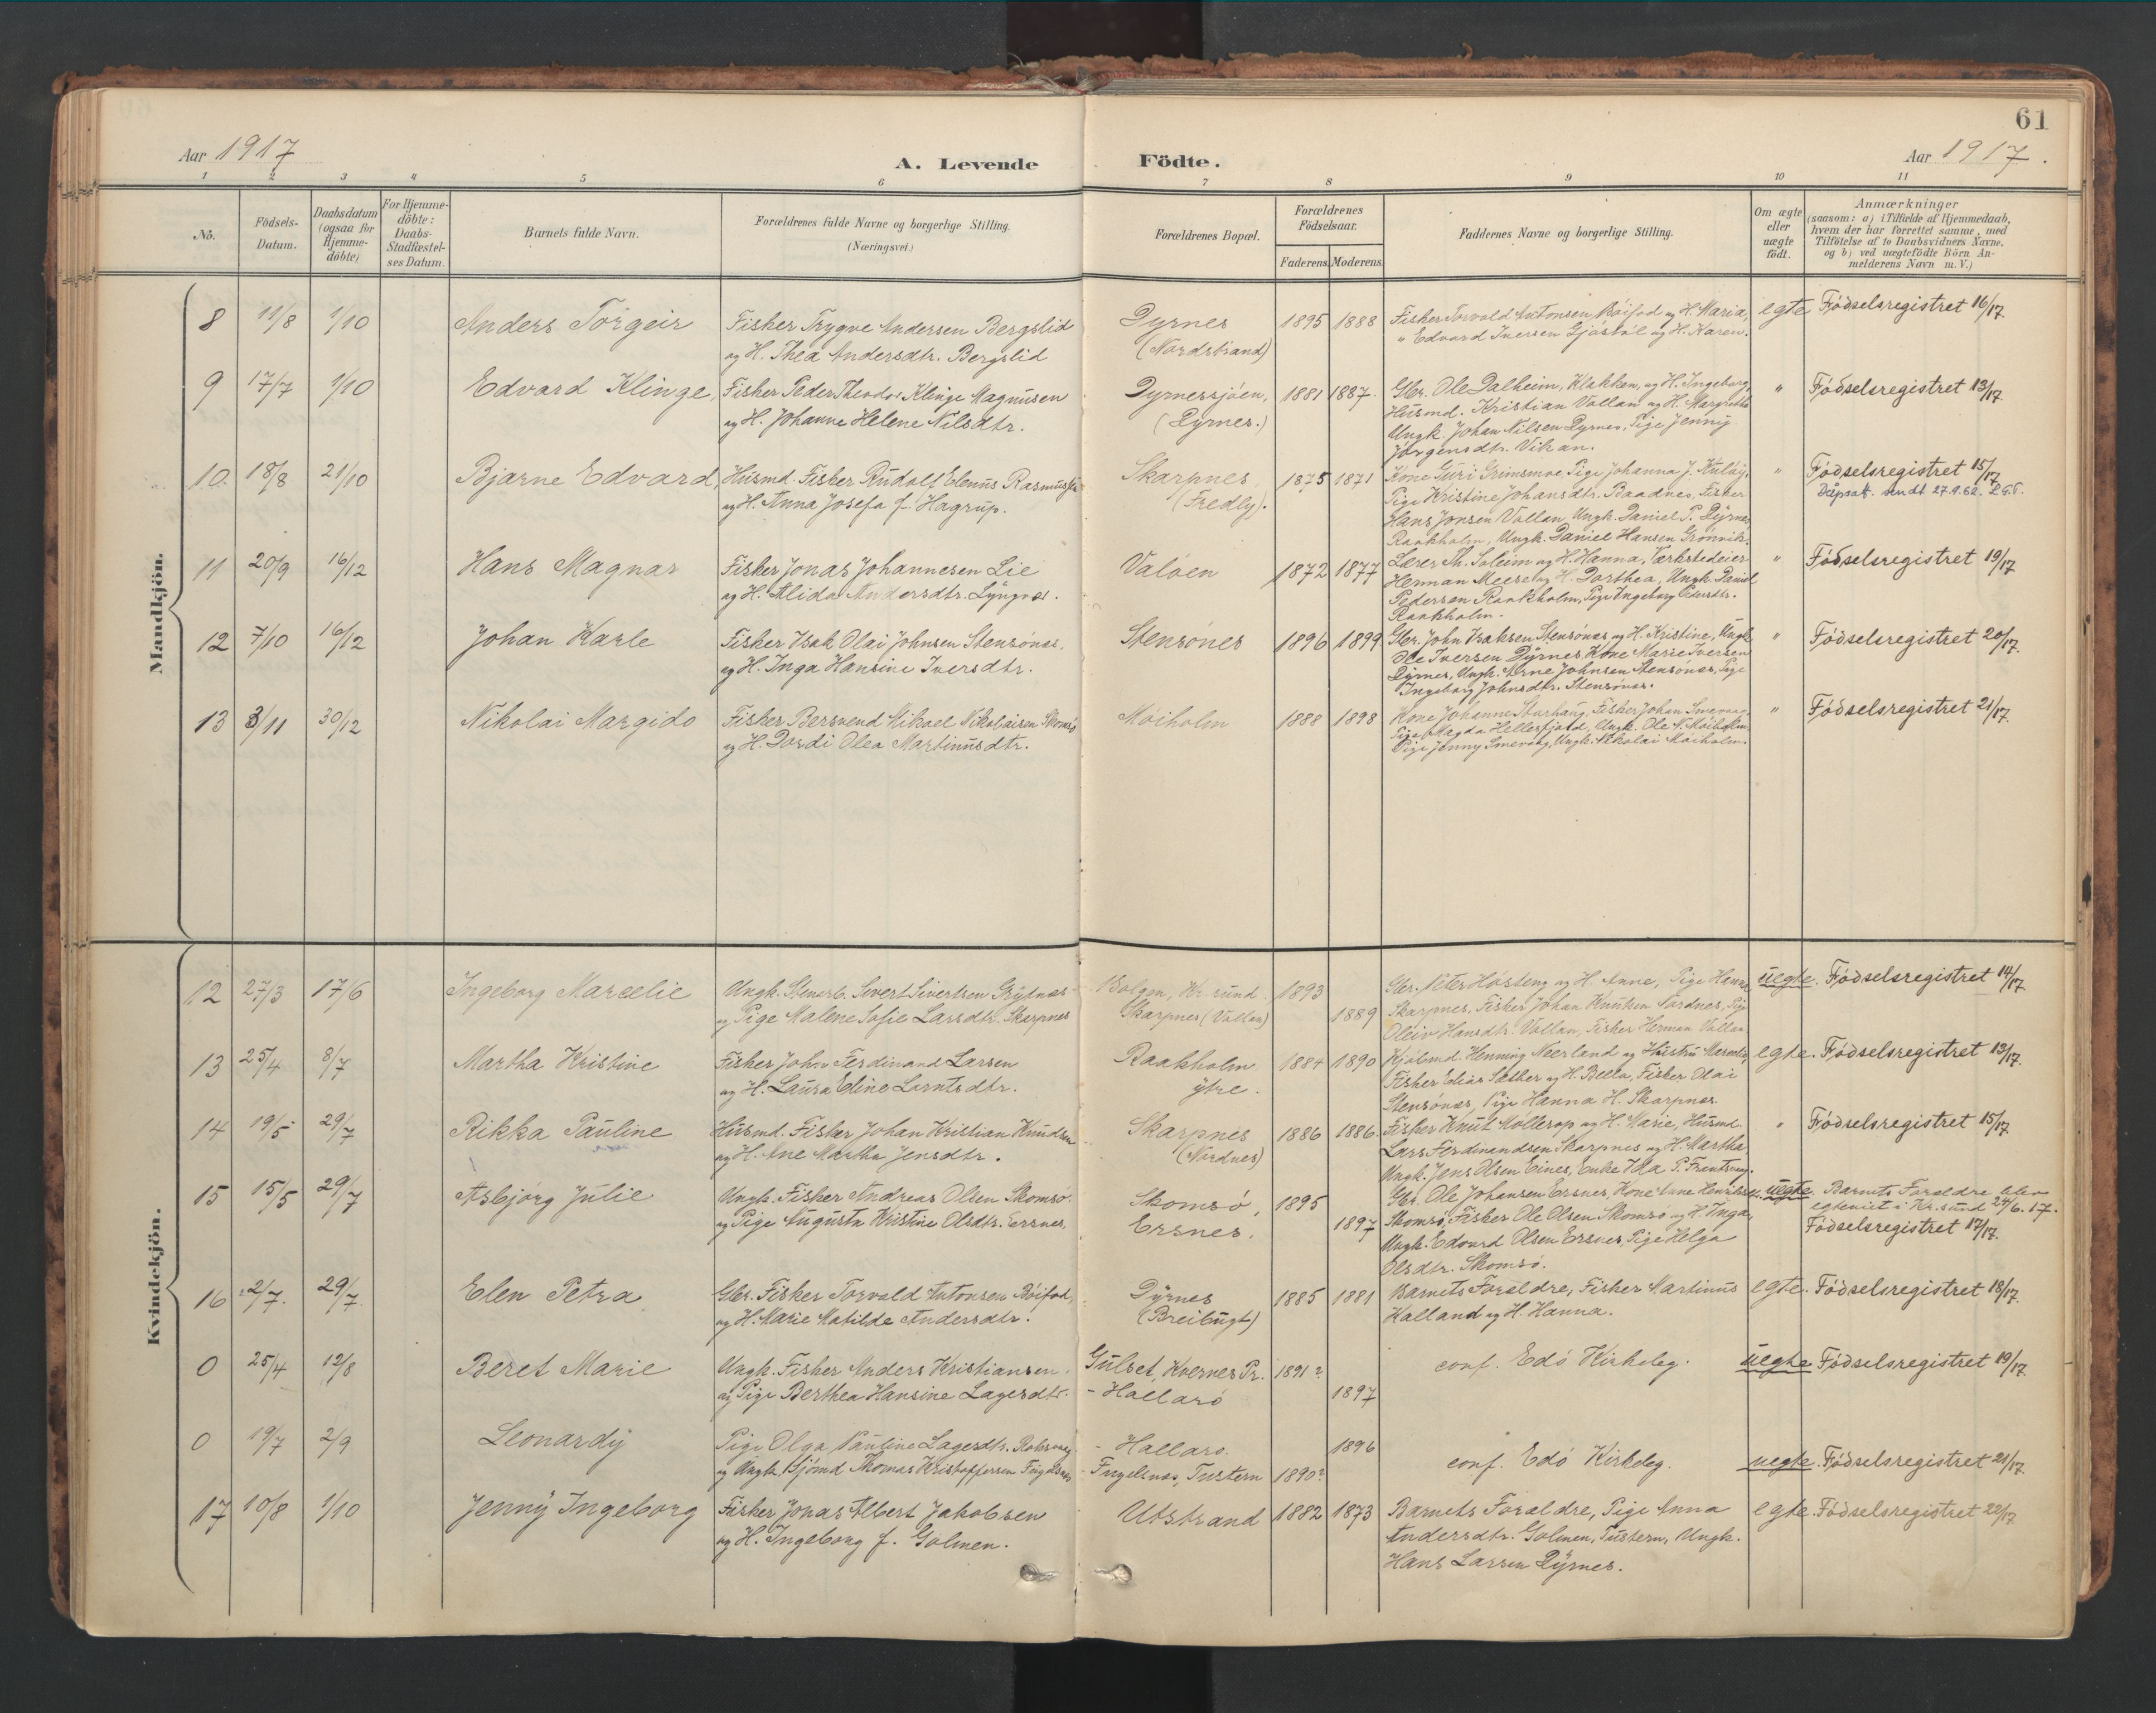 61
Aar 1917
A. Levende Födte.
Aar 1917.
1 2 3 4 5 6 7 8 9 10 11
No.
Födsels-Datum.
Daabsdatum (ogsaa for Hjemme-döbte)
For Hjemme-döbte: Daabs-Stadfæstel-ses Datum.
Barnets fulde Navn.
Forældrenes fulde Navne og borgerlige Stilling. (Næringsvei.)
Forældrenes Bopæl.
Forældrenes Födselsaar.
Faderens. Moderens.
Faddernes Navne og borgerlige Stilling.
Om ægte eller uægte födt.
Anmærkninger
(saasom: a) i Tilfælde af Hjemmedaab,
hvem der har forrettet samme, med
Tilföielse af to Daabsvidners Navne,
og b) ved uægtefödte Börn An-
melderens Navn m. V.)
Mandkjön.
8 11/8 1/10 Anders Torgeir
Fisker Trygve Andersen Bergslid
og H. Thea Andersdtr. Bergslid
Dyrnes
(Nordstrand)
1895 1888
Fisker Torvald Antonsen Röifod og H. Maria,
" Edvard Iversen Gjöstöl og H. Karen.
egte Födselsregistret 16/17.
9 17/7 1/10 Edvard Klinge,
Fisker Peder Theodor Klinge Magnusen
og H. Johanne Helene Nilsdtr.
Dyrnessjöen,
(Dyrnes.)
1881 1887.
Gbr. Ole Dalheim, Klakken, og H. Ingeborg,
Husmd. Kristian Vollan og H. Margrethe
Ungk. Johan Nilsen Dyrnes, Pige Jenny
Jörgensdtr. Vikan.
" Födselsregistret 13/17.
10. 18/8 21/10 Bjarne Edvard,
Husmd. Fisker Rudolf Elenus Rasmussen
og H. Anna Josefa f. Hagrup.
Skarpnes
(Fredly).
1875 1871
Kone Guri Grimsmoe Pige Johanna J. Kuløy,
Pige Kristine Johansdtr. Baadnes, Fisker
Hans Jonsen Vollan, Ungk. Daniel P. Dyrnes,
Raakholm, Ungk. Daniel Hansen Grönvik.
" Födselsregistret 15/17
Dåpsatt. sendt 27.9.62.
11 20/9 16/12 Hans Magnar
Fisker Jonas Johannesen Lie
og H. Alida Andersdtr. Lyngvær.
Valöen
1872 1877
Lærer Th. Soleim og H. Hanna, Værkstedeier
Herman Meese og H. Dorthea, Ungk. Daniel
Pedersen Raakholm, Pige Ingeborg Pedersdtr.
Raakholm.
" Födselsregistret 19/17
12 7/10 16/12 Johan Karle
Fisker Isak Olai Johnsen Stensönes,
og H. Inga Hansine Iversdtr.
Stensönes
1896 1899
Gbr. John Isaksen Stensönes og H. Kristine, Ungk.
Ole Iversen Dyrnes Kone Marie Iversen
Dyrnes, Ungk. Arne Johnsen Stensönes, Pige
Ingeborg Johnsdtr. Stensönes.
" Födselsregistret 20/17.
13 3/11 30/12 Nikolai Margido
Fisker Bersvend Mikael Nikolaisen Skomsö
og H. Dordi Olea Martinusdtr.
Möiholm
1888 1898
Kone Johanne Storhaug, Fisker Johan Smevaag,
Pige Magda Hellesfjord, Ungk. Ole N. Möiholm,
Pige Jenny Smevaag, Ungk. Nikolai Möiholm.
" Födselsregistret 21/17.
Kvindekjön.
12 27/3 17/6 Ingeborg Marcelie
Ungk. Stenarb. Sivert Sivertsen Grytnes
og Pige Malene Sofie Larsdtr. Skarpnes
Bolgen, Kr.sund.
Skarpnes (Vollan)
1893 1889
Gbr. Peter Hösteng og H. Anne, Pige Hanna
Skarpnes, Fisker Johan Knutsen Nordnes, Pige
Oleiv Hansdtr. Vollan, Fisker Herman Vollan
uegte. Födselsregistret 14/17
13 25/4 8/7 Martha Kristine
Fisker John Ferdinand Larsen
og H. Laura Eline Lorntsdtr.
Raakholm
ytre.
1884 1890
Kjöbmd. Henning Neerland og Hustru Marcelie,
Fisker Edias Sæther og H. Bella, Fisker Olai
Stensönes, Pige Hanna H. Skarpnes.
egte. Födselsregistret 13/17.
14 19/5 29/7 Rikka Pauline
Husmd. Fisker Johan Kristian Knudsen
og H. Ane Martha Jensdtr.
Skarpnes
(Nordnes)
1886 1886.
Fisker Knut Möllerop og H. Marie, Husmd.
Lars Ferdinandsen Skarpnes og H. Martha
Ungk. Jens Olsen Eines, Enke Ida P. Frantsvaag.
" Födselsregistret 15/17
15 15/5 29/7 Asbjörg Julie
Ungk. Fisker Andreas Olsen Skomsö.
og Pige Augusta Kristine Olsdtr. Ersnes,
Skomsö,
Ersnes.
1895 1897
Gbr. Ole Johansen Ersnes, Kone Anne Henriksen
Skomsö, Fisker Ole Olsen Skomsö og H. Inga,
Ungk. Edvard Olsen Ersnes, Pige Helga
Olsdtr. Skomsö.
uegte. Barnets Foraldre blev
egteviet i Kr.sund 24/6.17.
Födselsregistret 17/17.
16 2/7. 29/7 Elen Petra
Gbr. Fisker Torvald Antonsen Röifod,
og H. Marie Matilde Andersdtr.
Dyrnes
(Breibugt)
1885 1881
Barnets Foraldre, Fisker Martinus
Halland og H. Hanna.
egte. Födselsregistret 18/17.
0 25/4 12/8 Beret Marie
Ungk. Fisker Anders Kristiansen.
og Pige Berthea Hansine Lagesdtr.
Gulset, Kvernes Pr.
- Hallarö
1891? 1897
conf. Edö Kirkeleg.
uegte Födselsregistret 19/17.
0 19/7 2/9 Leonardy
Pige Olga Pauline Lagesdtr. Roksvaag
og Ungk. Sjömd Thomas Kristoffersen Fugelsnes
- Hallarö.
- Fugelsnes, Tustern
1896 1890?
conf. Edö Kirkeleg.
uegte. Födselsregistret 21/17.
17 10/8 1/10 Jenny Ingeborg
Fisker Jonas Albert Jakobsen
og H. Ingeborg f. Golmen.
Utstrand
1882 1873
Barnets Foraldre, Pige Anna
Andersdtr. Golmen, Tustern, Ungk.
Hans Larsen Dyrnes.
egte. Födselsregistret 22/17